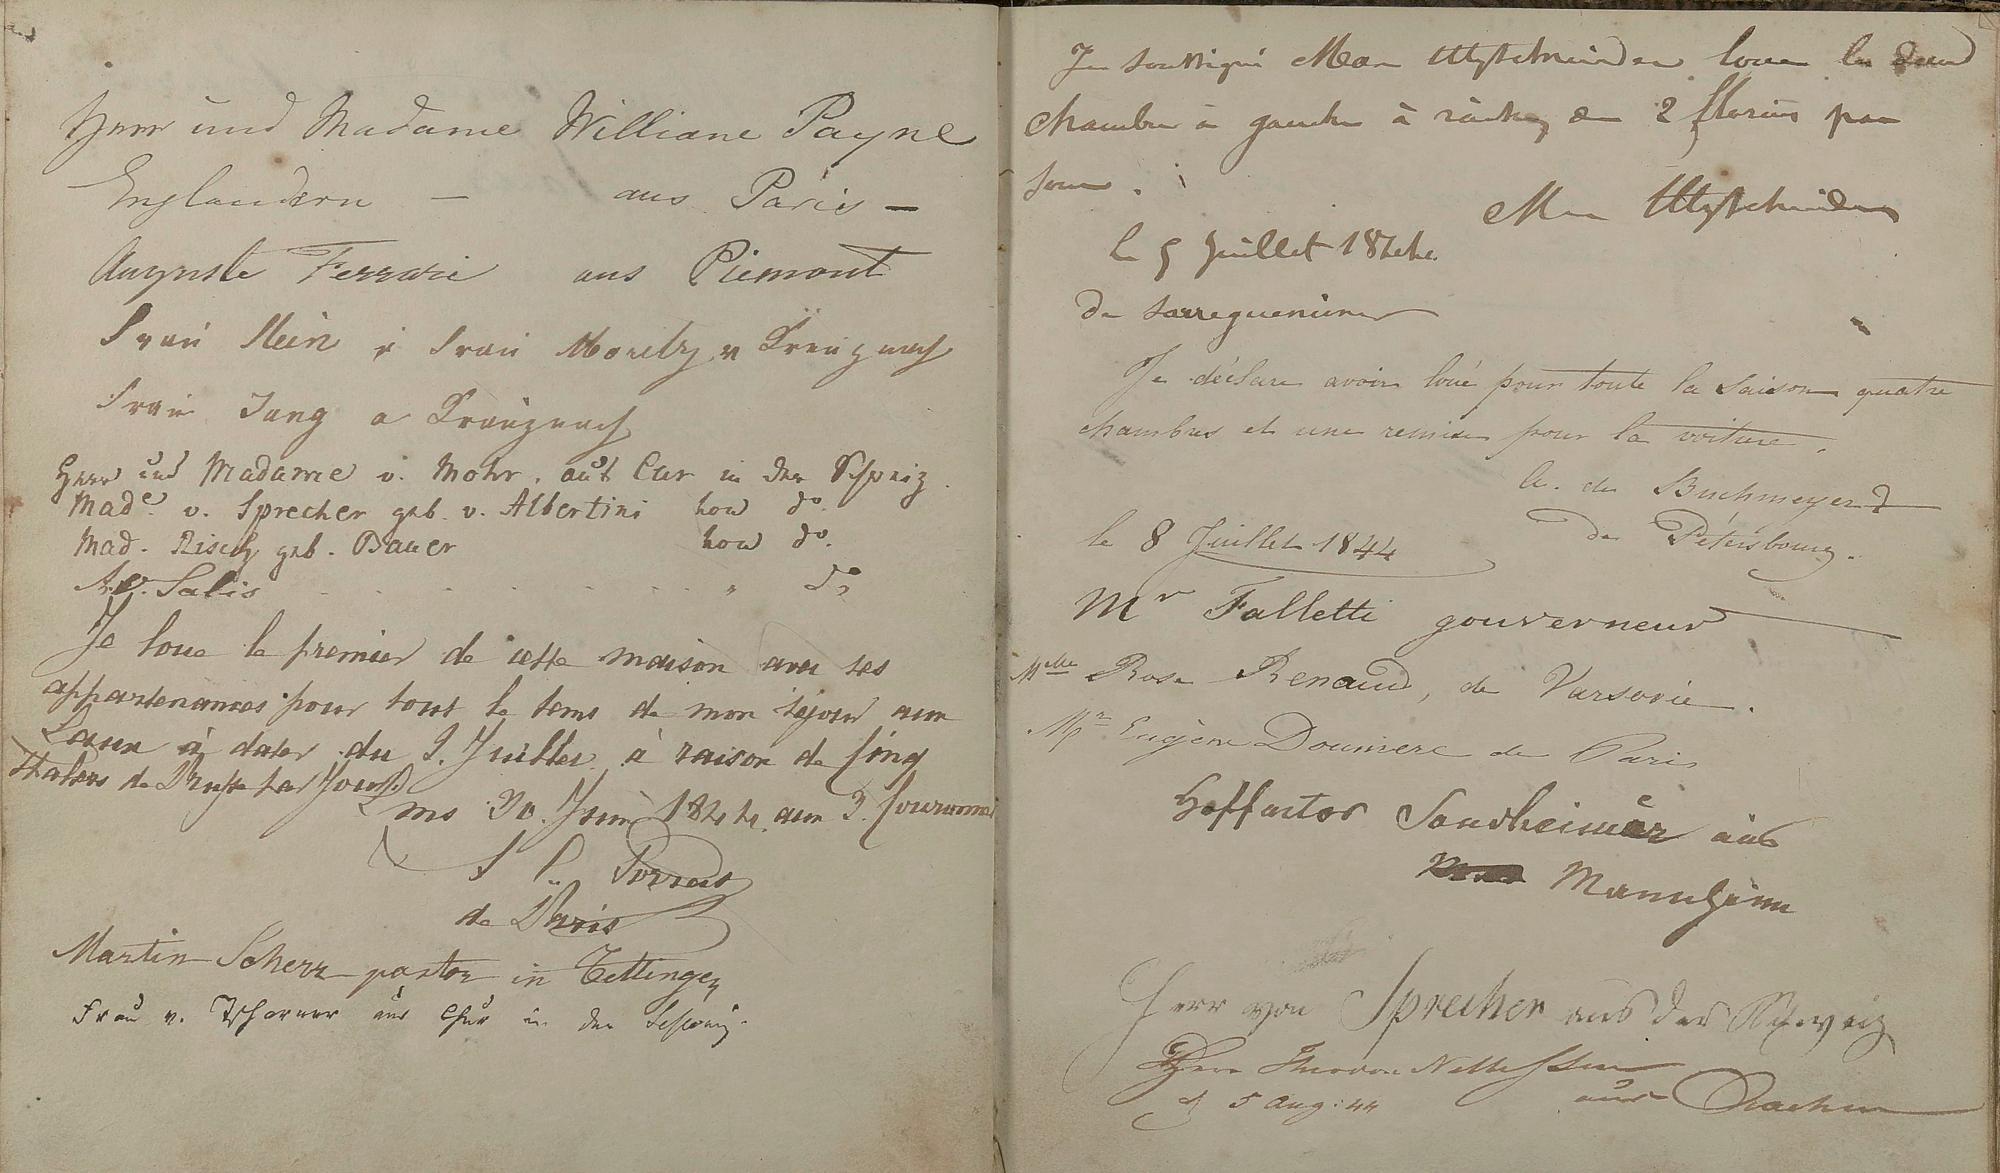 Herr und Madame Williane Payne
Englandern — aus Paris —
Auguste Ferrari aus Piemont
Frau Stein u Frau Moritz v Kreuznach
Frau Jung a Kreuznach
Herr und Madame v. Mohr. aus Cur in der Schweiz.
Made. v. Sprecher geb. v. Albertini do.
Mad. Risch geb. Bauer do.
A. v. Salis " do
Je loue le premier de cette maison avec ses
appartenances pour tout le tems de mon sejour aux
à dater du Juillet à raison de cinq
Thalers de Prusse par Jour
Ems 30. Juin 1844. aux
de Paris
Martin Scherr pastor in Tettingen
Frau v. Tscharner aus Chur in der Schweiz.
Je soussigné Max Utzschneider loue les deux
chambres à gauche à de 2 florins par
jour.
Max Utzschneider
le 5 Juillet 1844.
de Sarreguemines
Je déclare avoir loué pour toute la saison quatre
chambres et une remise pour la voiture.
de Buchmeyer
le 8 Juillet 1844 de Pétersbourg.
Mr Falletti gouverneur
Melle Rose Renaud, de Varsovie.
Mr Eugène de Paris
Hoffactor Sondheimer aus
Mannheim
Herr von Sprecher aus der Schweiz
Herr Theodor
d 5 Aug: 44 aus Aachen